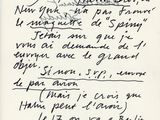 New York, n'a pas trouvé
le maquette de "Spiny"
Jetais sur que je
vous ai demande de l'
envoyer avec le grand
objet.
Si non, s.v.p., envoye
le par avion
(Mais je crois que
Hahn peut l'avoir)
Le 17 on va a Berlin